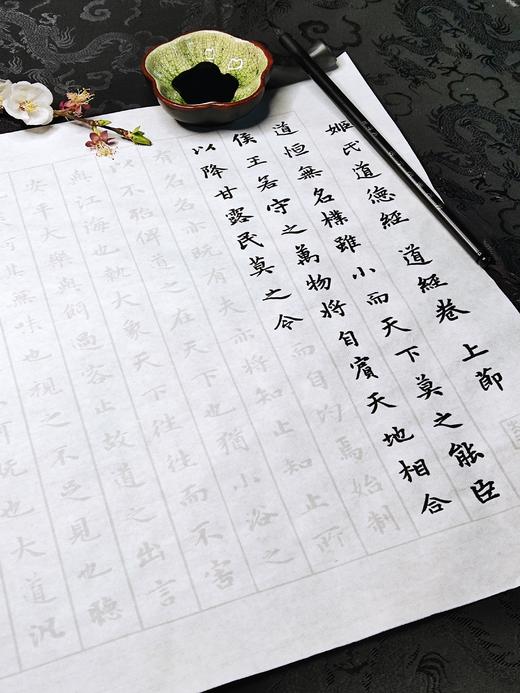 姬氏道德經 道經卷 上節
道恒無名樸雖小而天下莫之能臣
侯王若守之萬物將自賓天地相合
以降甘露民莫之令而自均焉始制
有名名亦既有夫亦將知止知止所
以不殆俾道之在天下也猶小浴之
與江海也執大象天下往往而不害
安平大樂與餌過止故道之出言
其無味也視之不足見也聽
可既也大道汎